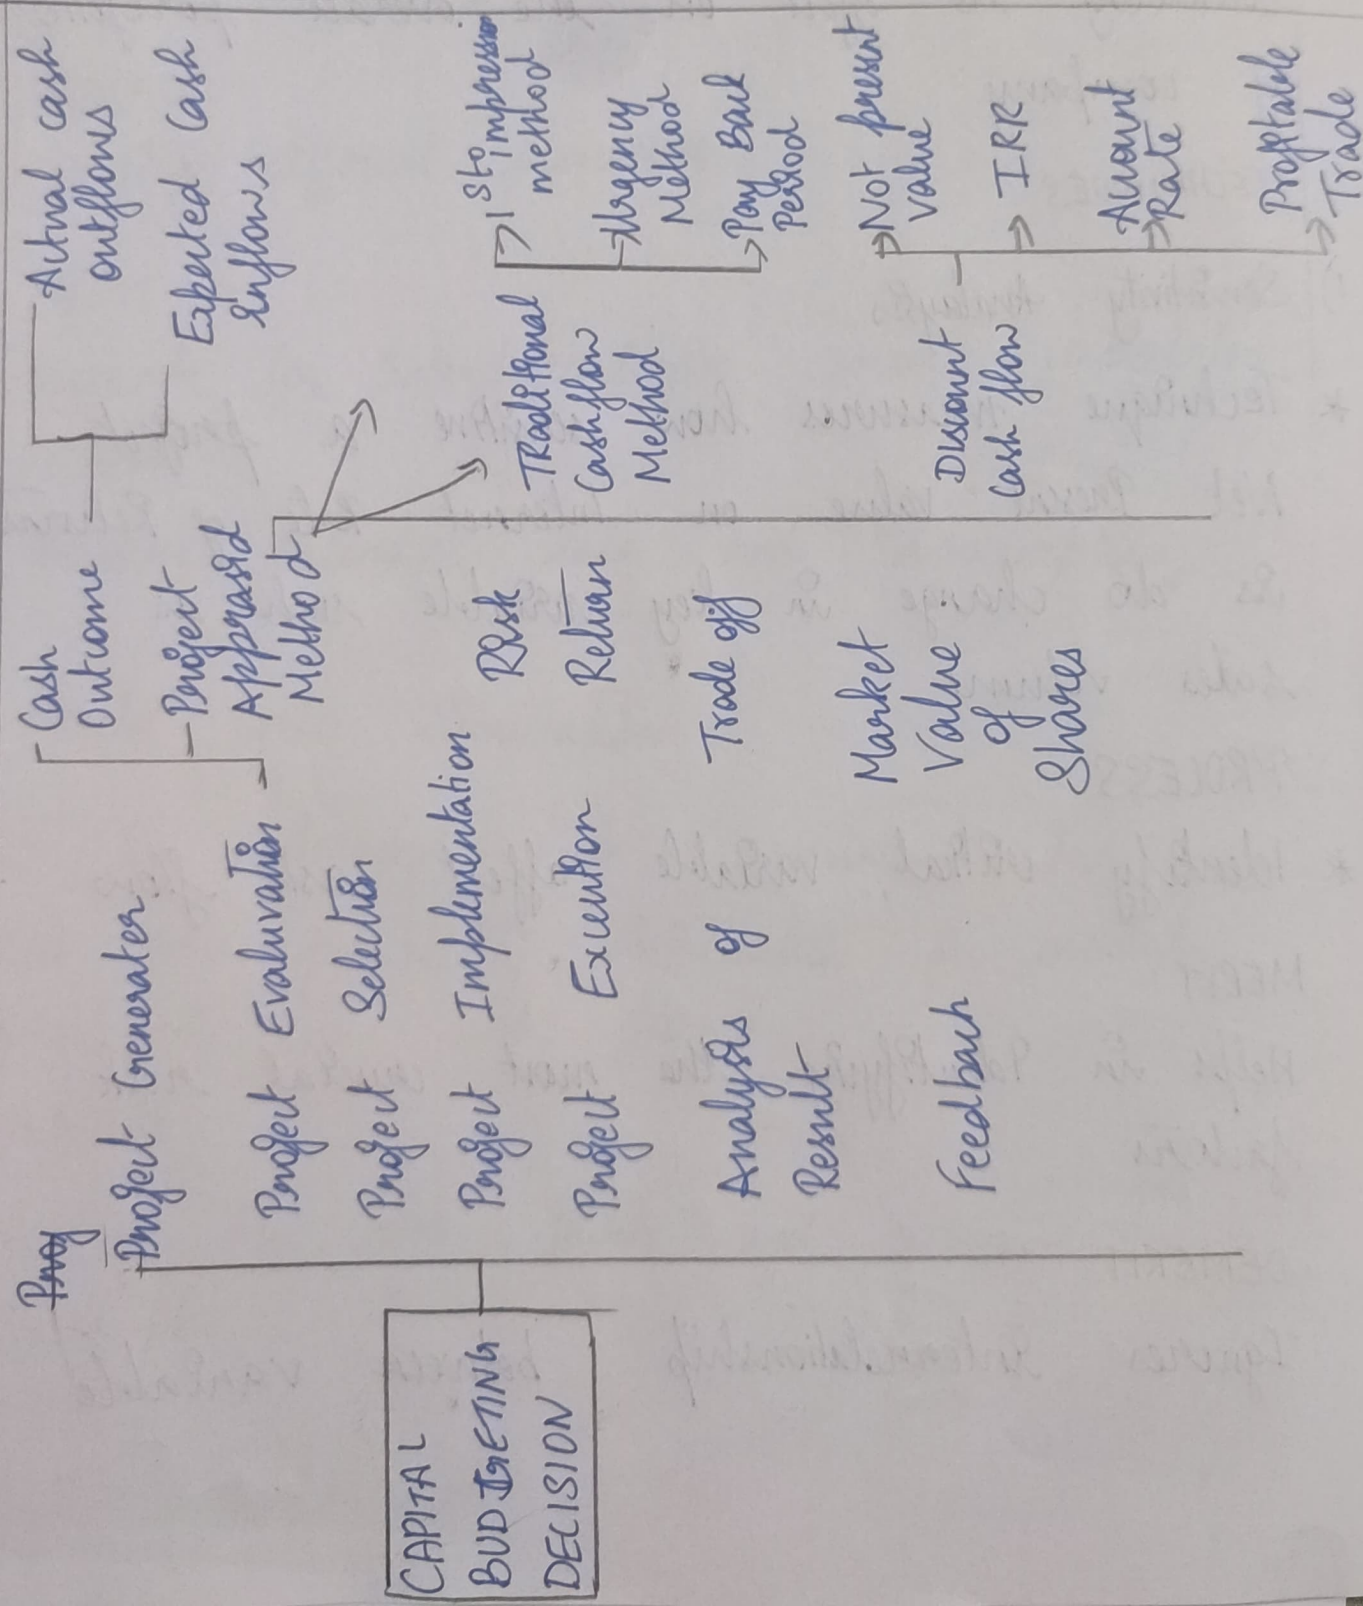 Proj
CAPITAL
BUDGETING
DECISION
Project Generater
Project Evaluvation
Project Selection
Project Implementation
Project Execution
Analysis of
Result
Feedback
Cash
Outcome
Project
Apprasid
Method
Risk
Return
Trade off
Market
Value
of
Shares
Actual cash
outflows
Expected Cash
Inflows
TRaditional
Cashflow
Method
1st impression
method
Urgency
Method
Pay Back
Period
Discount
Cash flow
Not present
value
IRR
Account
Rate
Profitable
Trade